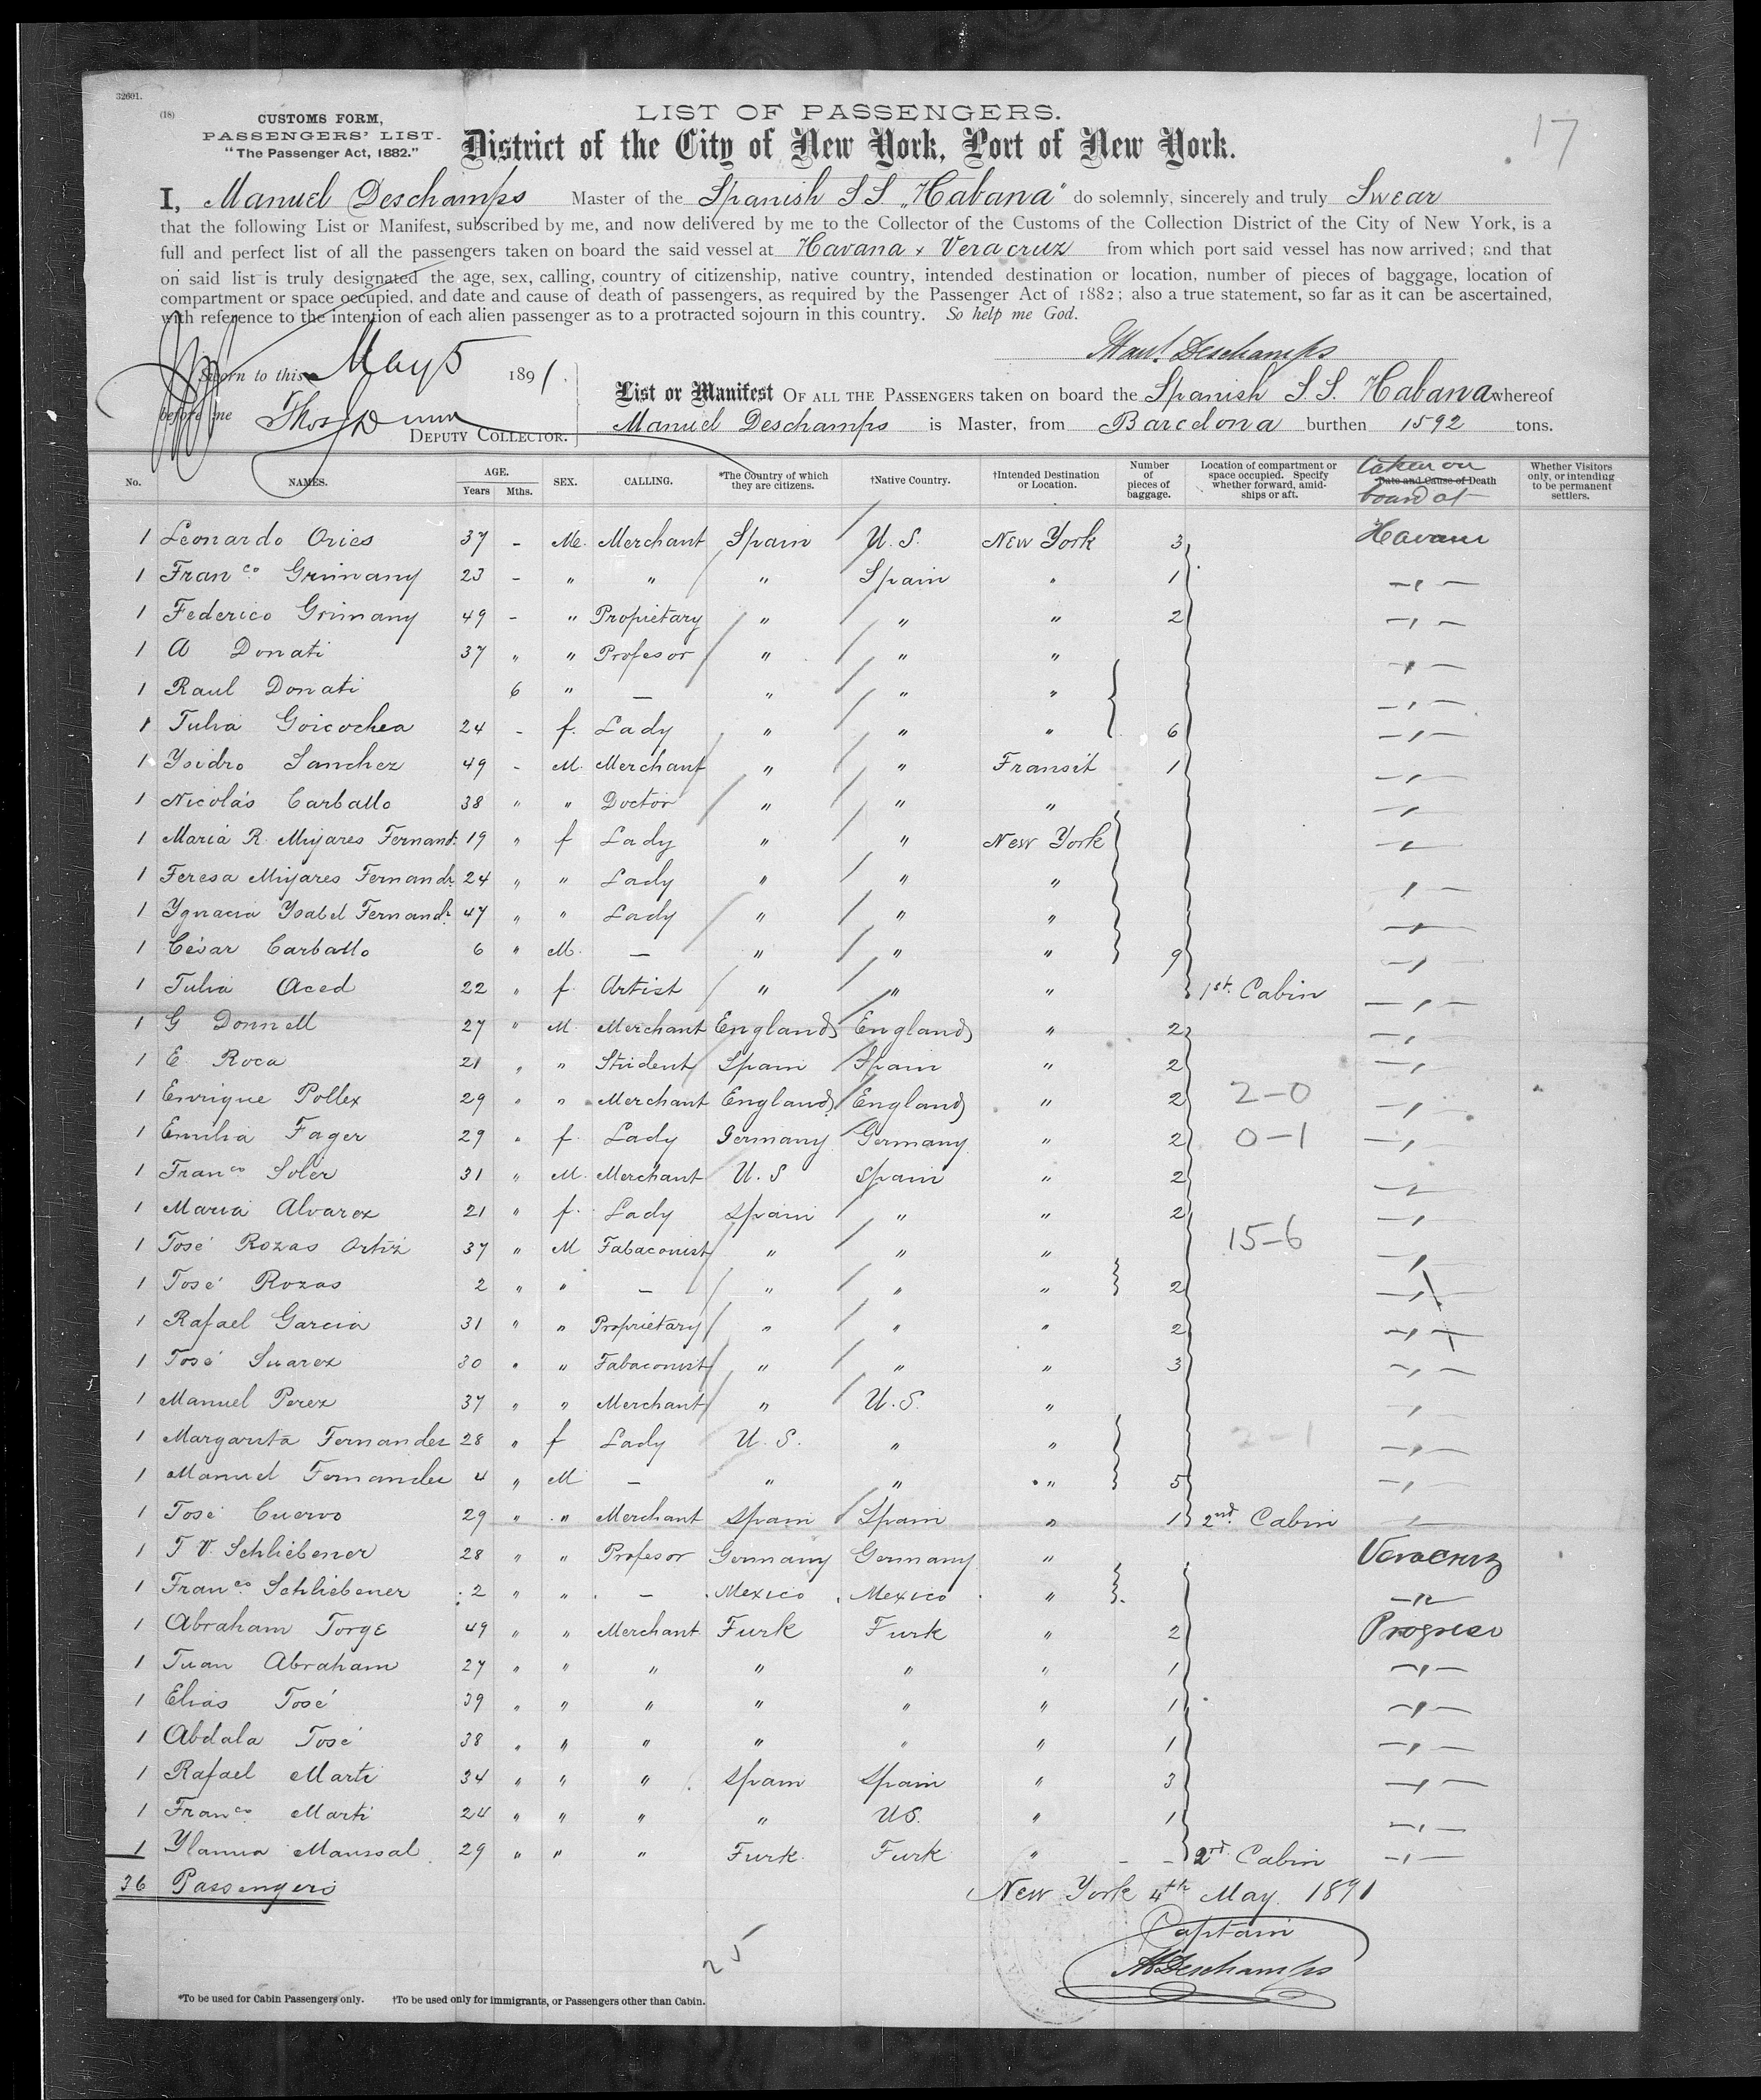 32601.
(18)
17
CUSTOMS FORM,
PASSENGERS' LIST.
"The Passenger Act, 1882."
LIST OF PASSENGERS.
District of the City of New York, Port of New York.
I, Manuel Deschamps Master of the Spanish S S. "Habana" do solemnly, sincerely and truly Swear
that the following List or Manifest, subscribed by me, and now delivered by me to the Collector of the Customs of the Collection District of the City of New York, is a
full and perfect list of all the passengers taken on board the said vessel at Havana & Veracruz from which port said vessel has now arrived; and that
on said list is truly designated the age, sex, calling, country of citizenship, native country, intended destination or location, number of pieces of baggage, location of
compartment or space occupied, and date and cause of death of passengers, as required by the Passenger Act of 1882; also a true statement, so far as it can be ascertained,
with reference to the intention of each alien passenger as to a protracted sojourn in this country. So help me God.
Manl. Deschamps
Sworn to this May 5 1891.
before me Thos Dunn
DEPUTY COLLECTOR.
List or Manifest OF ALL THE PASSENGERS taken on board the Spanish S S. Habana whereof
Manuel Deschamps is Master, from Barcelona burthen 1592 tons.
No. NAMES. AGE. Years Mths. SEX. CALLING. *The Country of which they are citizens. †Native Country. †Intended Destination or Location. Number of pieces of baggage. Location of compartment or space occupied. Specify whether forward, amidships or aft. Date and Cause of Death taken on board at Whether Visitors only, or intending to be permanent settlers.
1 Leonardo Ories 37 - M. Merchant Spain U. S. New York 3 Havana
1 Franco Grimany 23 - " " " Spain " 1 -"-
1 Federico Grimany 49 - " Propietary " " " 2 -"-
1 A Donati 37 " " Profesor " " " -"-
1 Raul Donati 6 " - " " " -"-
1 Julia Goicochea 24 - f. Lady " " " 6 -"-
1 Ysidro Sanchez 49 - M. Merchant " " Transit 1 -"-
1 Nicolás Carballo 38 " " Doctor " " " -"-
1 Maria R. Mijares Fernand. 19 " f Lady " " New York -"-
1 Teresa Mijares Fernandz 24 " " Lady " " " -"-
1 Ygnacia Ysabel Fernandz 47 " " Lady " " " -"-
1 César Carballo 6 " M. - " " " 9 -"-
1 Julia Aced 22 " f. Artist " " " 1st. Cabin -"-
1 G Donnell 27 " M. Merchant England England " 2 -"-
1 E. Roca 21 " " Student Spain Spain " 2 -"-
1 Enrique Pollex 29 " " Merchant England England " 2 2-0 -"-
1 Emilia Fager 29 " f. Lady Germany Germany " 2 0-1 -"-
1 Franco Soler 31 " M. Merchant U. S Spain " 2 -"-
1 Maria Alvarez 21 " f. Lady Spain " " 2 -"-
1 José Rozas Ortiz 37 " M Tabaconist " " " 15-6 -"-
1 José Rozas 2 " " - " " " 2 -"-
1 Rafael Garcia 31 " " Proprietary " " " 2 -"-
1 José Suarez 30 " " Tabaconist " " " 3 -"-
1 Manuel Perez 37 " " Merchant " U. S. " -"-
1 Margarita Fernandez 28 " f Lady U. S. " " 2-1 -"-
1 Manuel Fernandez 4 " M - " " " 5 -"-
1 José Cuervo 29 " " Merchant Spain Spain " 1 2nd. Cabin -"-
1 J V. Schliebener 28 " " Profesor Germany Germany " Veracruz
1 Franco Schliebener 2 " " - Mexico Mexico " -"-
1 Abraham Jorge 49 " " Merchant Turk Turk " 2 Progreso
1 Juan Abraham 27 " " " " " " 1 -"-
1 Elias José 39 " " " " " " 1 -"-
1 Abdala José 38 " " " " " " 1 -"-
1 Rafael Marti 34 " " " Spain Spain " 3 -"-
1 Franco Marti 24 " " " " US. " 1 -"-
1 29 " " " Turk Turk " - - 2nd Cabin -"-
36 Passengers
New York 4th May 1891
Captain
M Deschamps
25
*To be used for Cabin Passengers only. †To be used only for immigrants, or Passengers other than Cabin.